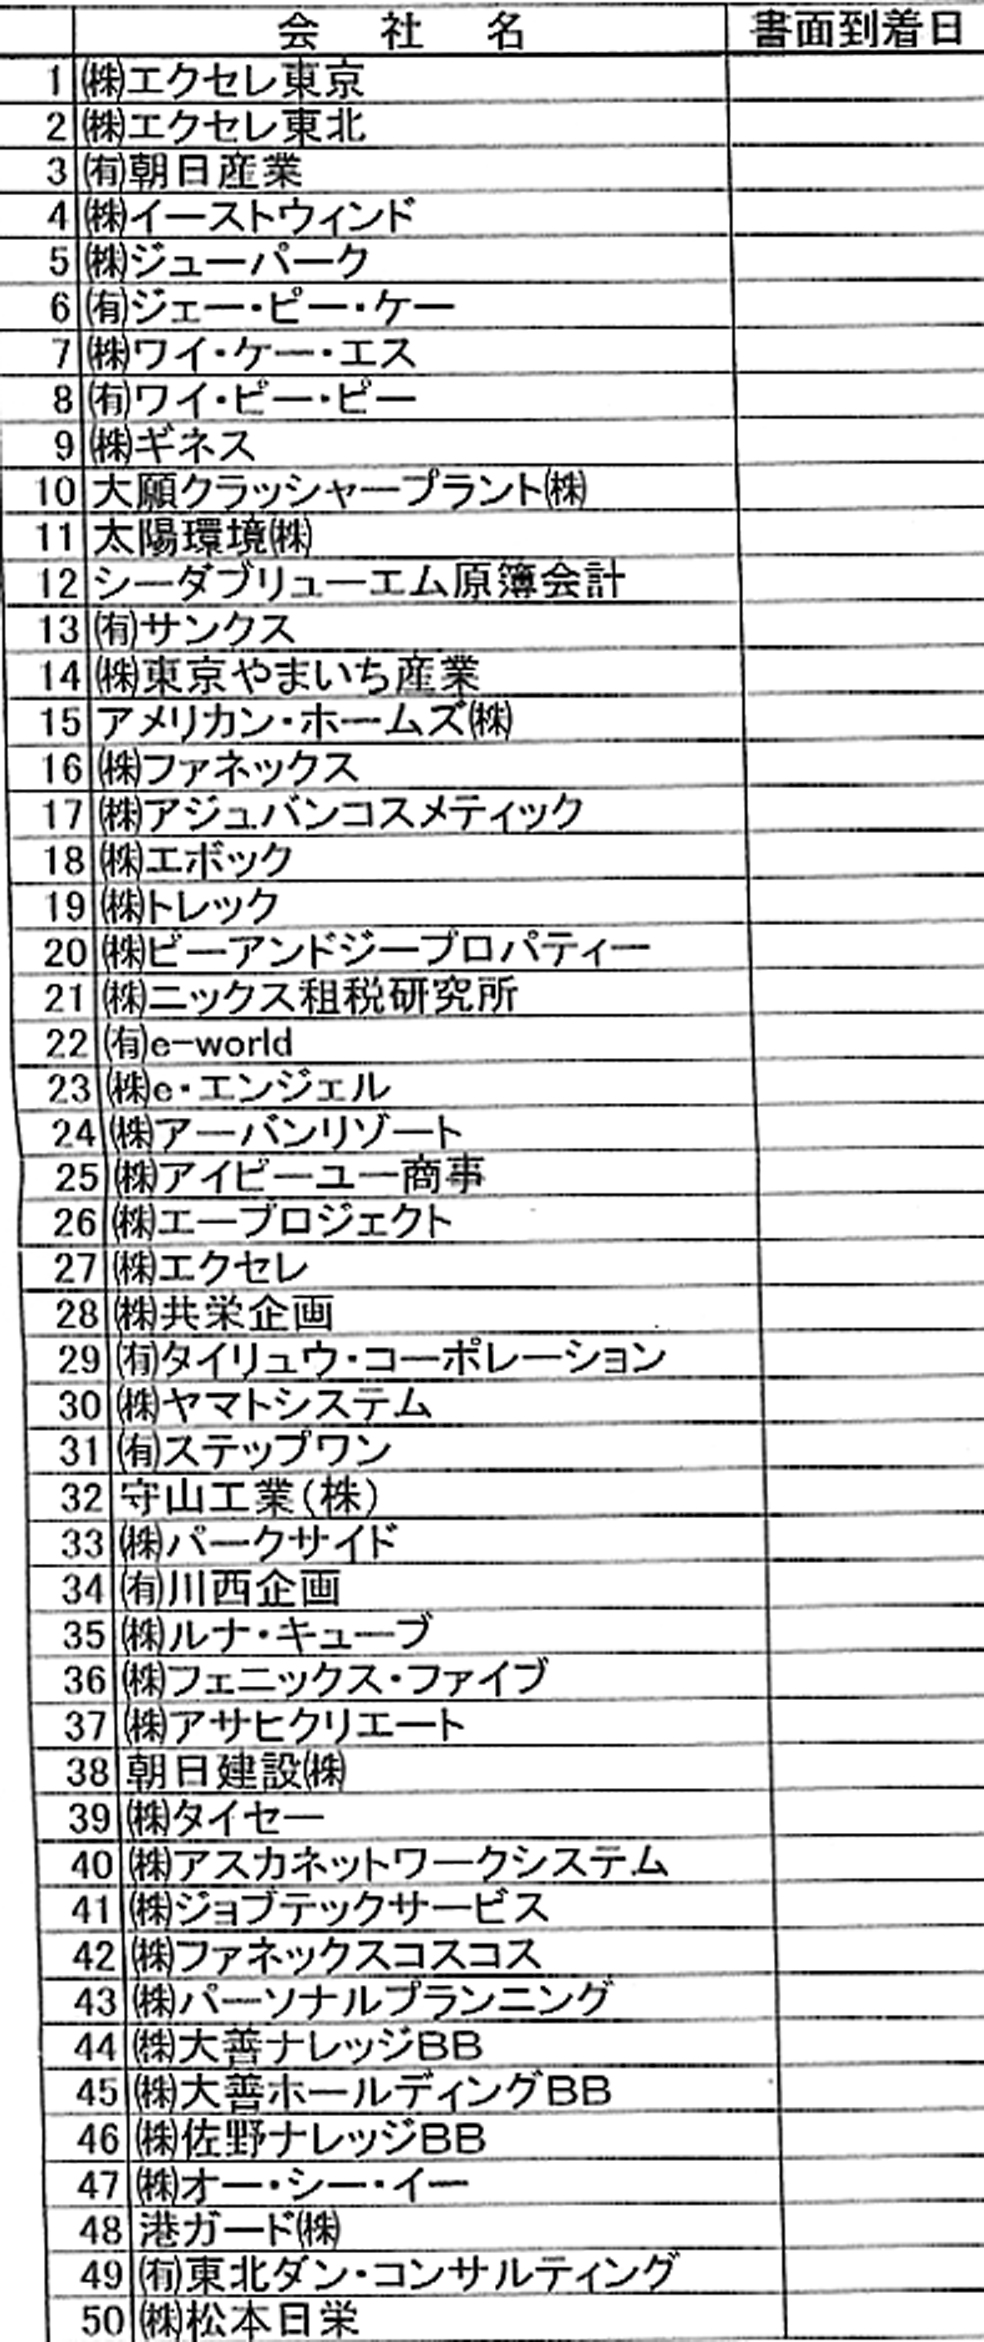 会 社 名 書面到着日
1 ㈱エクセレ東京
2 ㈱エクセレ東北
3 ㈲朝日産業
4 ㈱イーストウィンド
5 ㈱ジューパーク
6 ㈲ジェー・ピー・ケー
7 ㈱ワイ・ケー・エス
8 ㈲ワイ・ピー・ピー
9 ㈱ギネス
10 大願クラッシャープラント㈱
11 太陽環境㈱
12 シーダブリューエム原簿会計
13 ㈲サンクス
14 ㈱東京やまいち産業
15 アメリカン・ホームズ㈱
16 ㈱ファネックス
17 ㈱アジュバンコスメティック
18 ㈱エボック
19 ㈱トレック
20 ㈱ビーアンドジープロパティー
21 ㈱ニックス租税研究所
22 ㈲e-world
23 ㈱e・エンジェル
24 ㈱アーバンリゾート
25 ㈱アイビーユー商事
26 ㈱エープロジェクト
27 ㈱エクセレ
28 ㈱共栄企画
29 ㈲タイリュウ・コーポレーション
30 ㈱ヤマトシステム
31 ㈲ステップワン
32 守山工業(株)
33 ㈱パークサイド
34 ㈲川西企画
35 ㈱ルナ・キューブ
36 ㈱フェニックス・ファイブ
37 ㈱アサヒクリエート
38 朝日建設㈱
39 ㈱タイセー
40 ㈱アスカネットワークシステム
41 ㈱ジョブテックサービス
42 ㈱ファネックスコスコス
43 ㈱パーソナルプランニング
44 ㈱大善ナレッジBB
45 ㈱大善ホールディングBB
46 ㈱佐野ナレッジBB
47 ㈱オー・シー・イー
48 港ガード㈱
49 ㈲東北ダン・コンサルティング
50 ㈱松本日栄